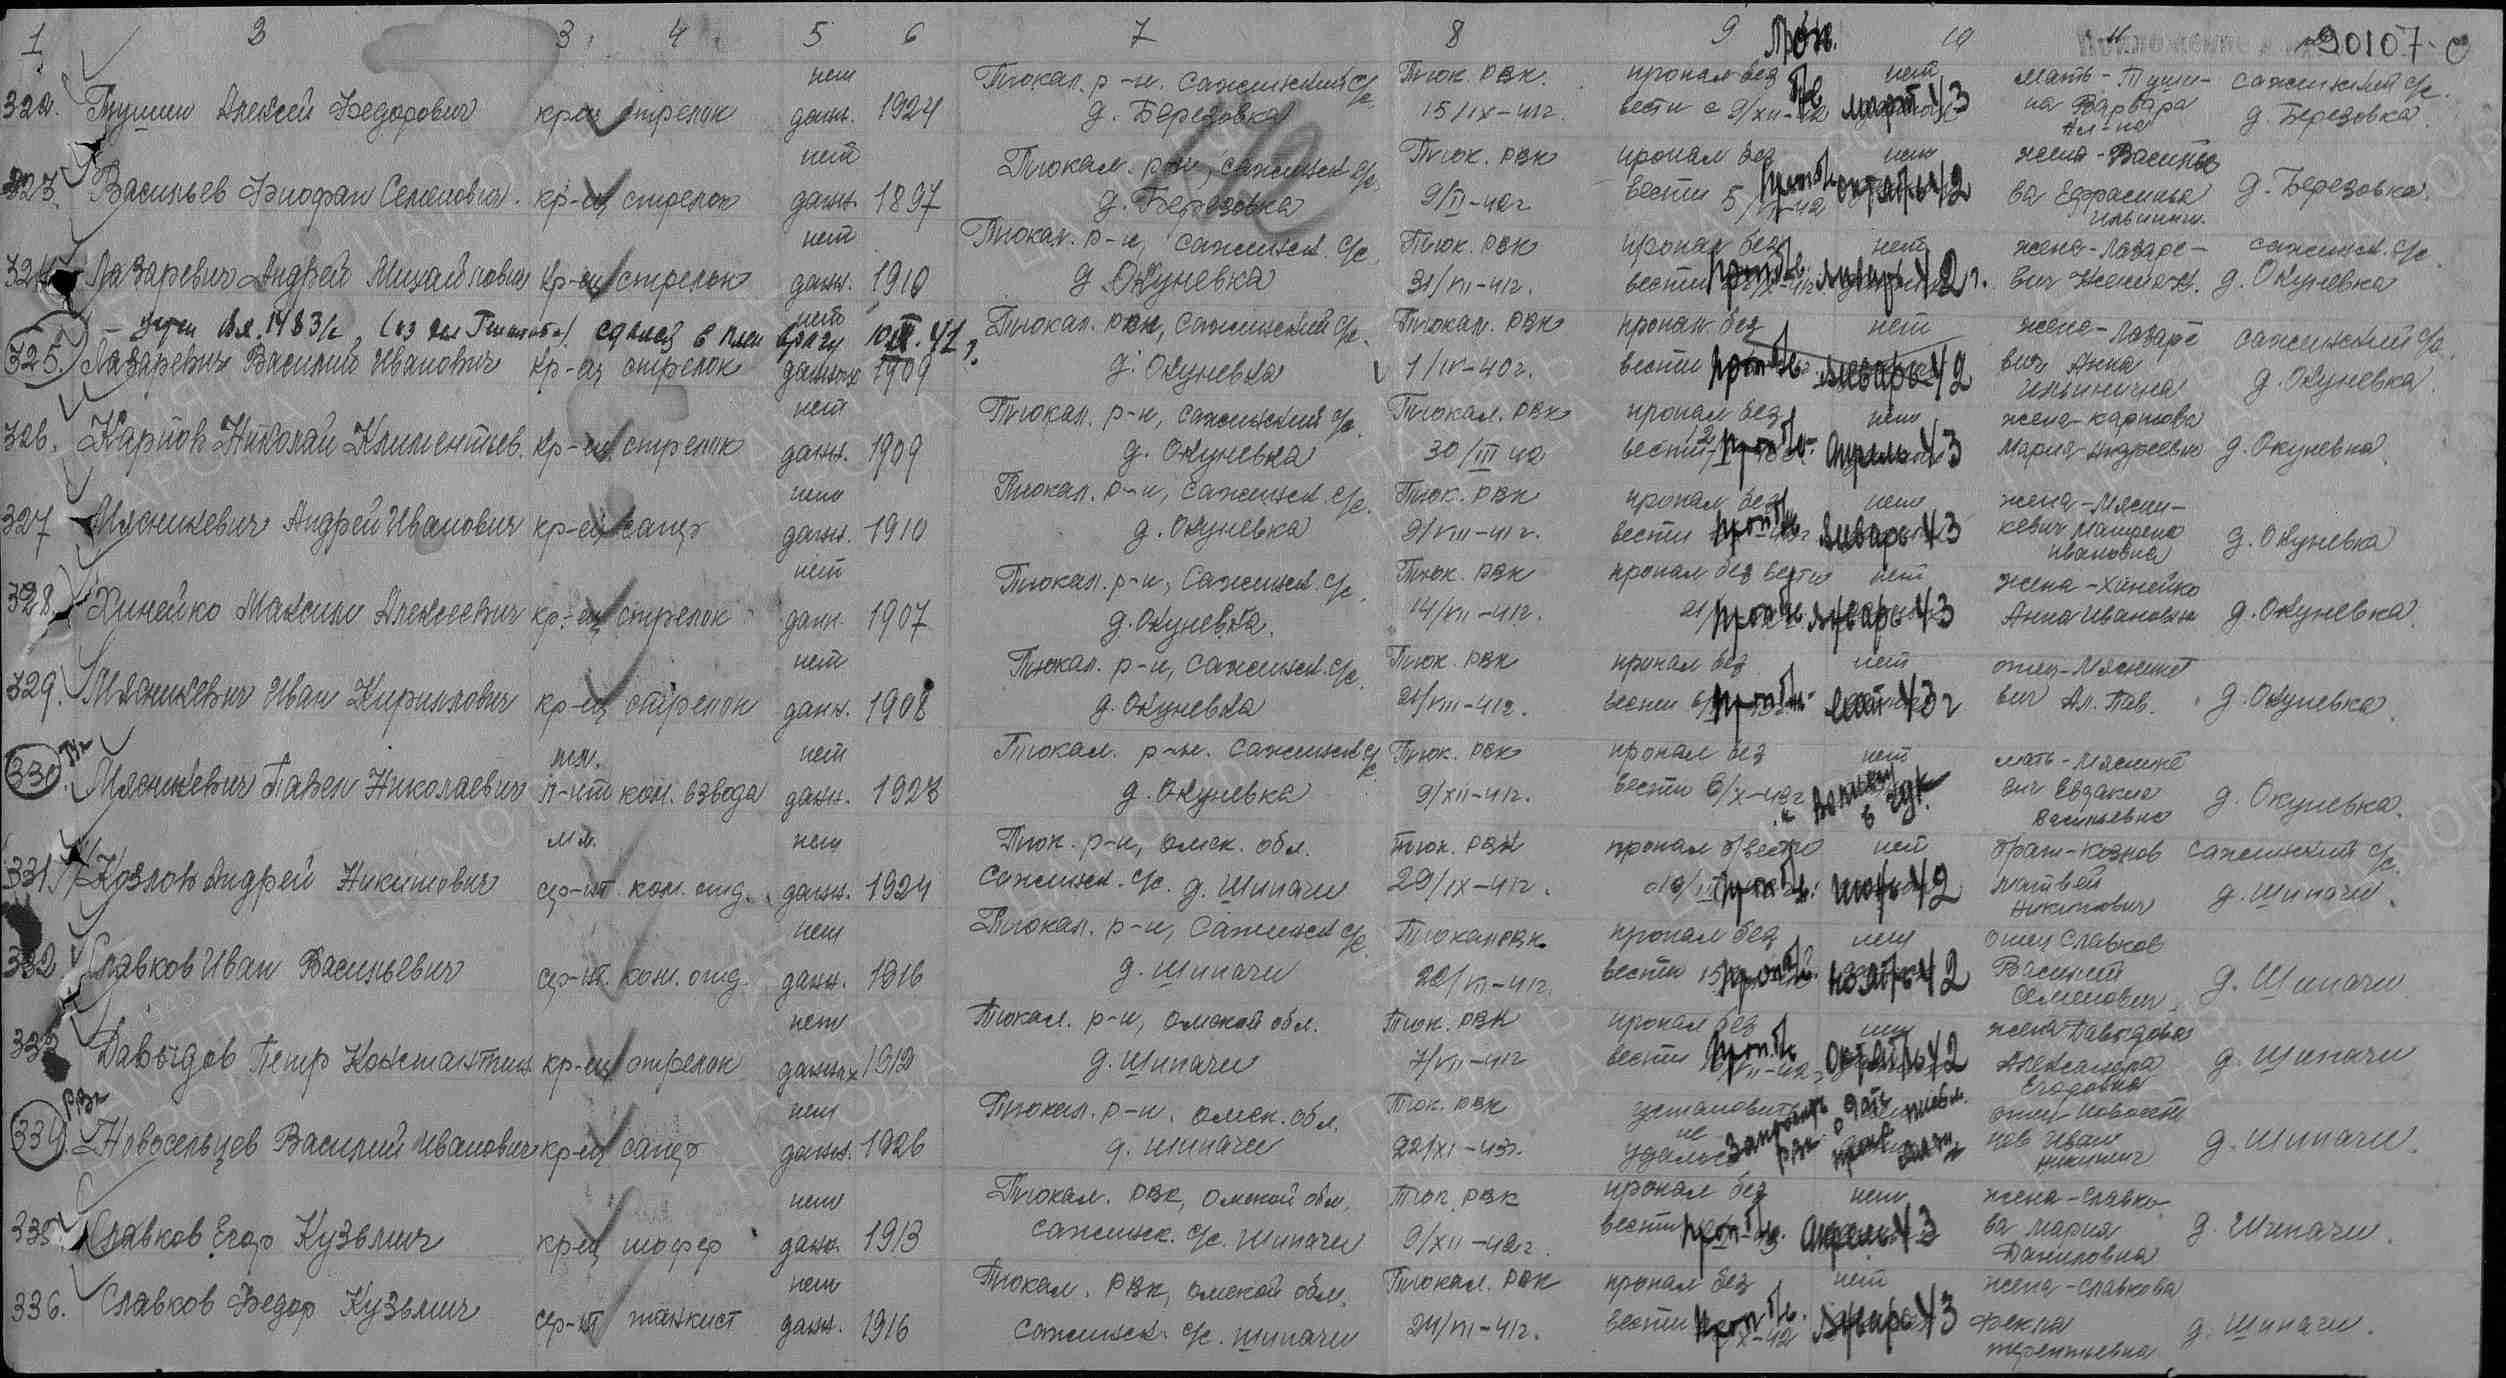 1 2 3 4 5 6 7 8 9 10 11 90107-с
Проп.
322. Тушин Алексей Федорович кр-ец стрелок нет данн. 1924 Тюкал. р-н. Сажинский с/с. д. Березовка Тюк. РВК. 15/IX-41г. пропал без вести с 9/XII-42 б/в март 43 нет мать - Тушина Варвара Ал-на Сажинский с/с. д. Березовка
323. Васильев Феофан Семенович. кр-ец стрелок нет данн. 1897 Тюкал. р-н, Сажинск с/с, д. Березовка Тюк. РВК 9/II-42г пропал без вести 5/VII-42 проп б/в октябрь 42 нет жена - Васильева Ефросинья Ильинич. д. Березовка.
324. Лазаревич Андрей Михайлович кр-ец стрелок нет данн. 1910 Тюкал. р-н, Сажинск. с/с, д. Окуневка Тюк. РВК 31/VII-41г. пропал без вести проп б/в. январь 42 г. нет жена - Лазаревич Женя Н. Сажинск. с/с. д. Окуневка
сдался в плен врагу
325. Лазаревич Василий Иванович кр-ец стрелок нет данных 1909 Тюкал. РВК, Сажинский с/с. д. Окуневка Тюкал. РВК 1/IV-40г. пропал без вести проп б/в. январь 42 нет жена - Лазаревич Анна Ильинична Сажинский с/с д. Окуневка
326. Карпов Николай Климентьев. кр-ец стрелок нет данн. 1909 Тюкал. р-н, Сажинский с/с. д. Окуневка Тюкал. РВК 30/III 42 пропал без вести проп б/в. апрель 43 нет жена - Карпова Мария Андреевна д. Окуневка.
327 Мясникевич Андрей Иванович кр-ец сапер нет данн. 1910 Тюкал. р-н, Сажинск с/с. д. Окуневка Тюк. РВК 9/VIII-41г. пропал без вести проп б/в январь 43 нет жена - Мясникевич Матрена Ивановна д. Окуневка
328. Хинейко Максим Алексеевич кр-ец стрелок нет данн. 1907 Тюкал. р-н, Сажинск с/с. д. Окуневка. Тюк. РВК 14/VII-41г. пропал без вести проп б/в январь 43 нет жена - Хинейко Анна Ивановна д. Окуневка.
329. Мясникевич Иван Кириллович кр-ец стрелок нет данн. 1908 Тюкал. р-н, Сажинск с/с. д. Окуневка Тюк. РВК 21/VIII-41г. пропал без вести проп б/в. май 43г нет отец - Мясникевич Ал. Пав. д. Окуневка.
330. Мясникевич Павел Николаевич мл. л-нт ком. взвода нет данн. 1923 Тюкал. р-н. Сажинск с/с д. Окуневка Тюк. РВК 9/XII-41г. пропал без вести 6/X-43г нет мать - Мясникевич Евдакия Васильевна д. Окуневка.
331. Козлов Андрей Никитович мл. ср-нт ком. отд. нет данн. 1924 Тюк. р-н, Омск. обл. Сажинск. с/с. д. Шипачи Тюк. РВК 29/IX-41г. пропал б/вести проп б/в. июнь 42 нет брат - Козлов Матвей Никитович Сажинский с/с. д. Шипачи.
332. Славков Иван Васильевич ср-нт. ком. отд. нет данн. 1916 Тюкал. р-н, Сажинск с/с. д. Шипачи Тюкал РВК. 22/VI-41г. пропал без вести проп б/в. ноябрь 42 нет отец Славков Василий Семенович д. Шипачи
333 Давыдов Петр Константин кр-ец стрелок нет данных 1912 Тюкал. р-н, Омской обл. д. Шипачи Тюк. РВК 7/VII-41г пропал без вести проп б/в октябрь 42 нет жена Давыдова Александра Егоровна д. Шипачи
334. Новосельцев Василий Иванович кр-ец сапер нет данн. 1926 Тюкал. р-н. Омск. обл. д. Шипачи Тюк. РВК 22/XI-43г. установить не удалось отец - Новосельцев Иван Никитич д. Шипачи.
335. Славков Егор Кузьмич кр-ец шофер нет данн. 1913 Тюкал. РВК, Омской обл. Сажинск. с/с. Шипачи Тюк. РВК 9/XII-42г. пропал без вести проп б/в. апрель 43 нет жена - Славкова Мария Даниловна д. Шипачи.
336. Славков Федор Кузьмич ср-нт танкист нет данн. 1916 Тюкал. РВК, Омской обл. Сажинск. с/с. Шипачи Тюкал. РВК 24/VI-41г. пропал без вести проп б/в. январь 43 нет жена - Славкова Фекла Терентьевна д. Шипачи.